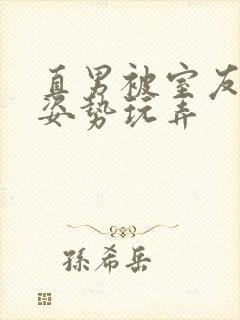 直男被室友
姿势玩弄
孫希岳